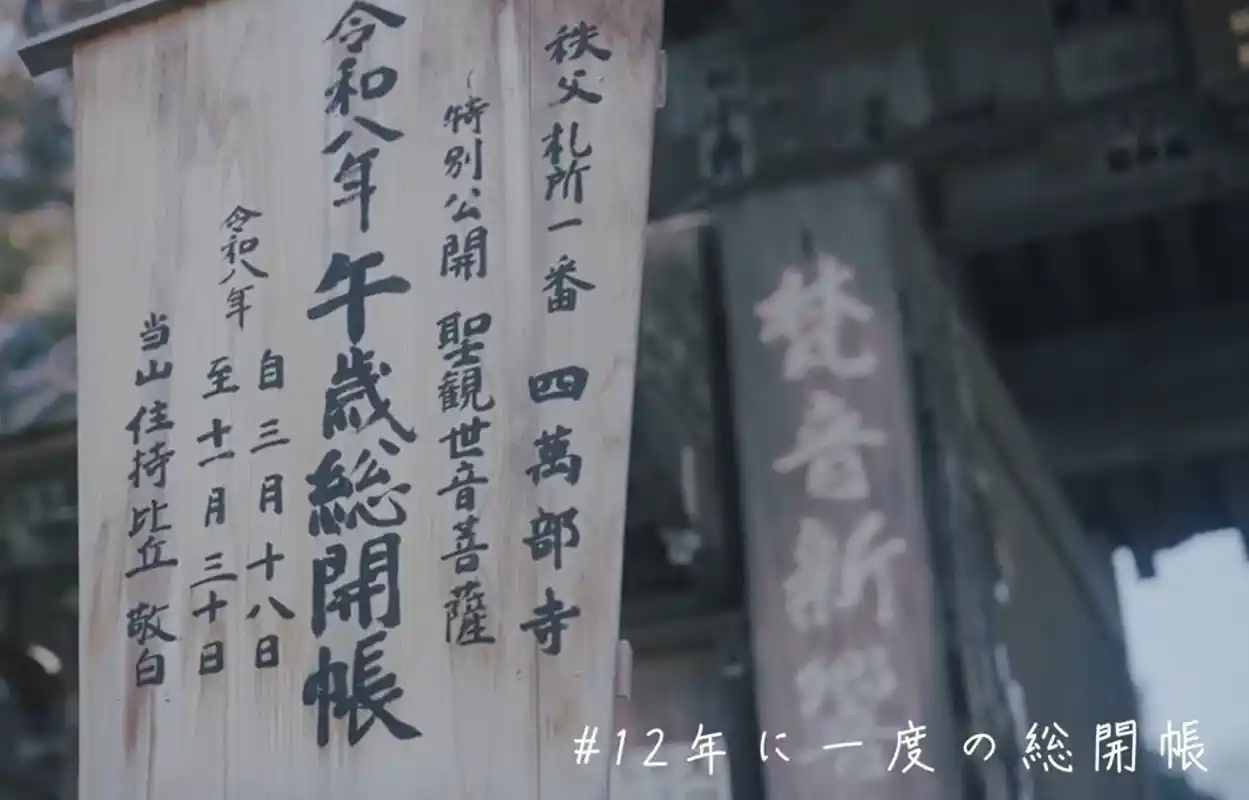 秩父札所一番 四萬部寺
特別公開 聖観世音菩薩
令和八年 午歳総開帳
令和八年
自 三月 十八日
至 十一月 三十日
当山 住持 比丘 敬白
梵音新
#12年に一度の総開帳